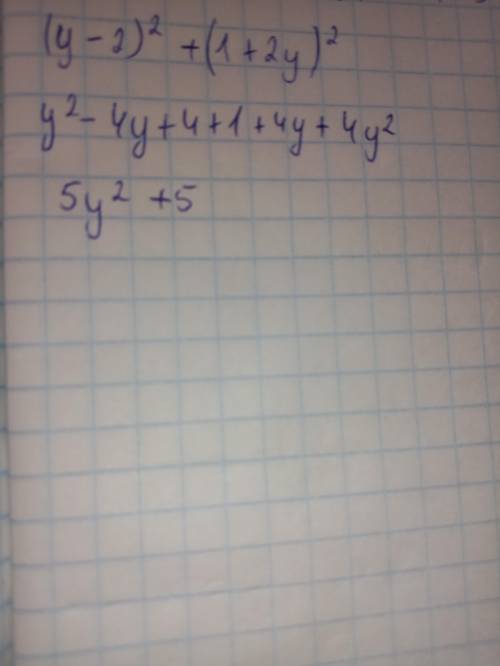 (y - 2)² + (1 + 2y)²
y² - 4y + 4 + 1 + 4y + 4y²
5y² + 5